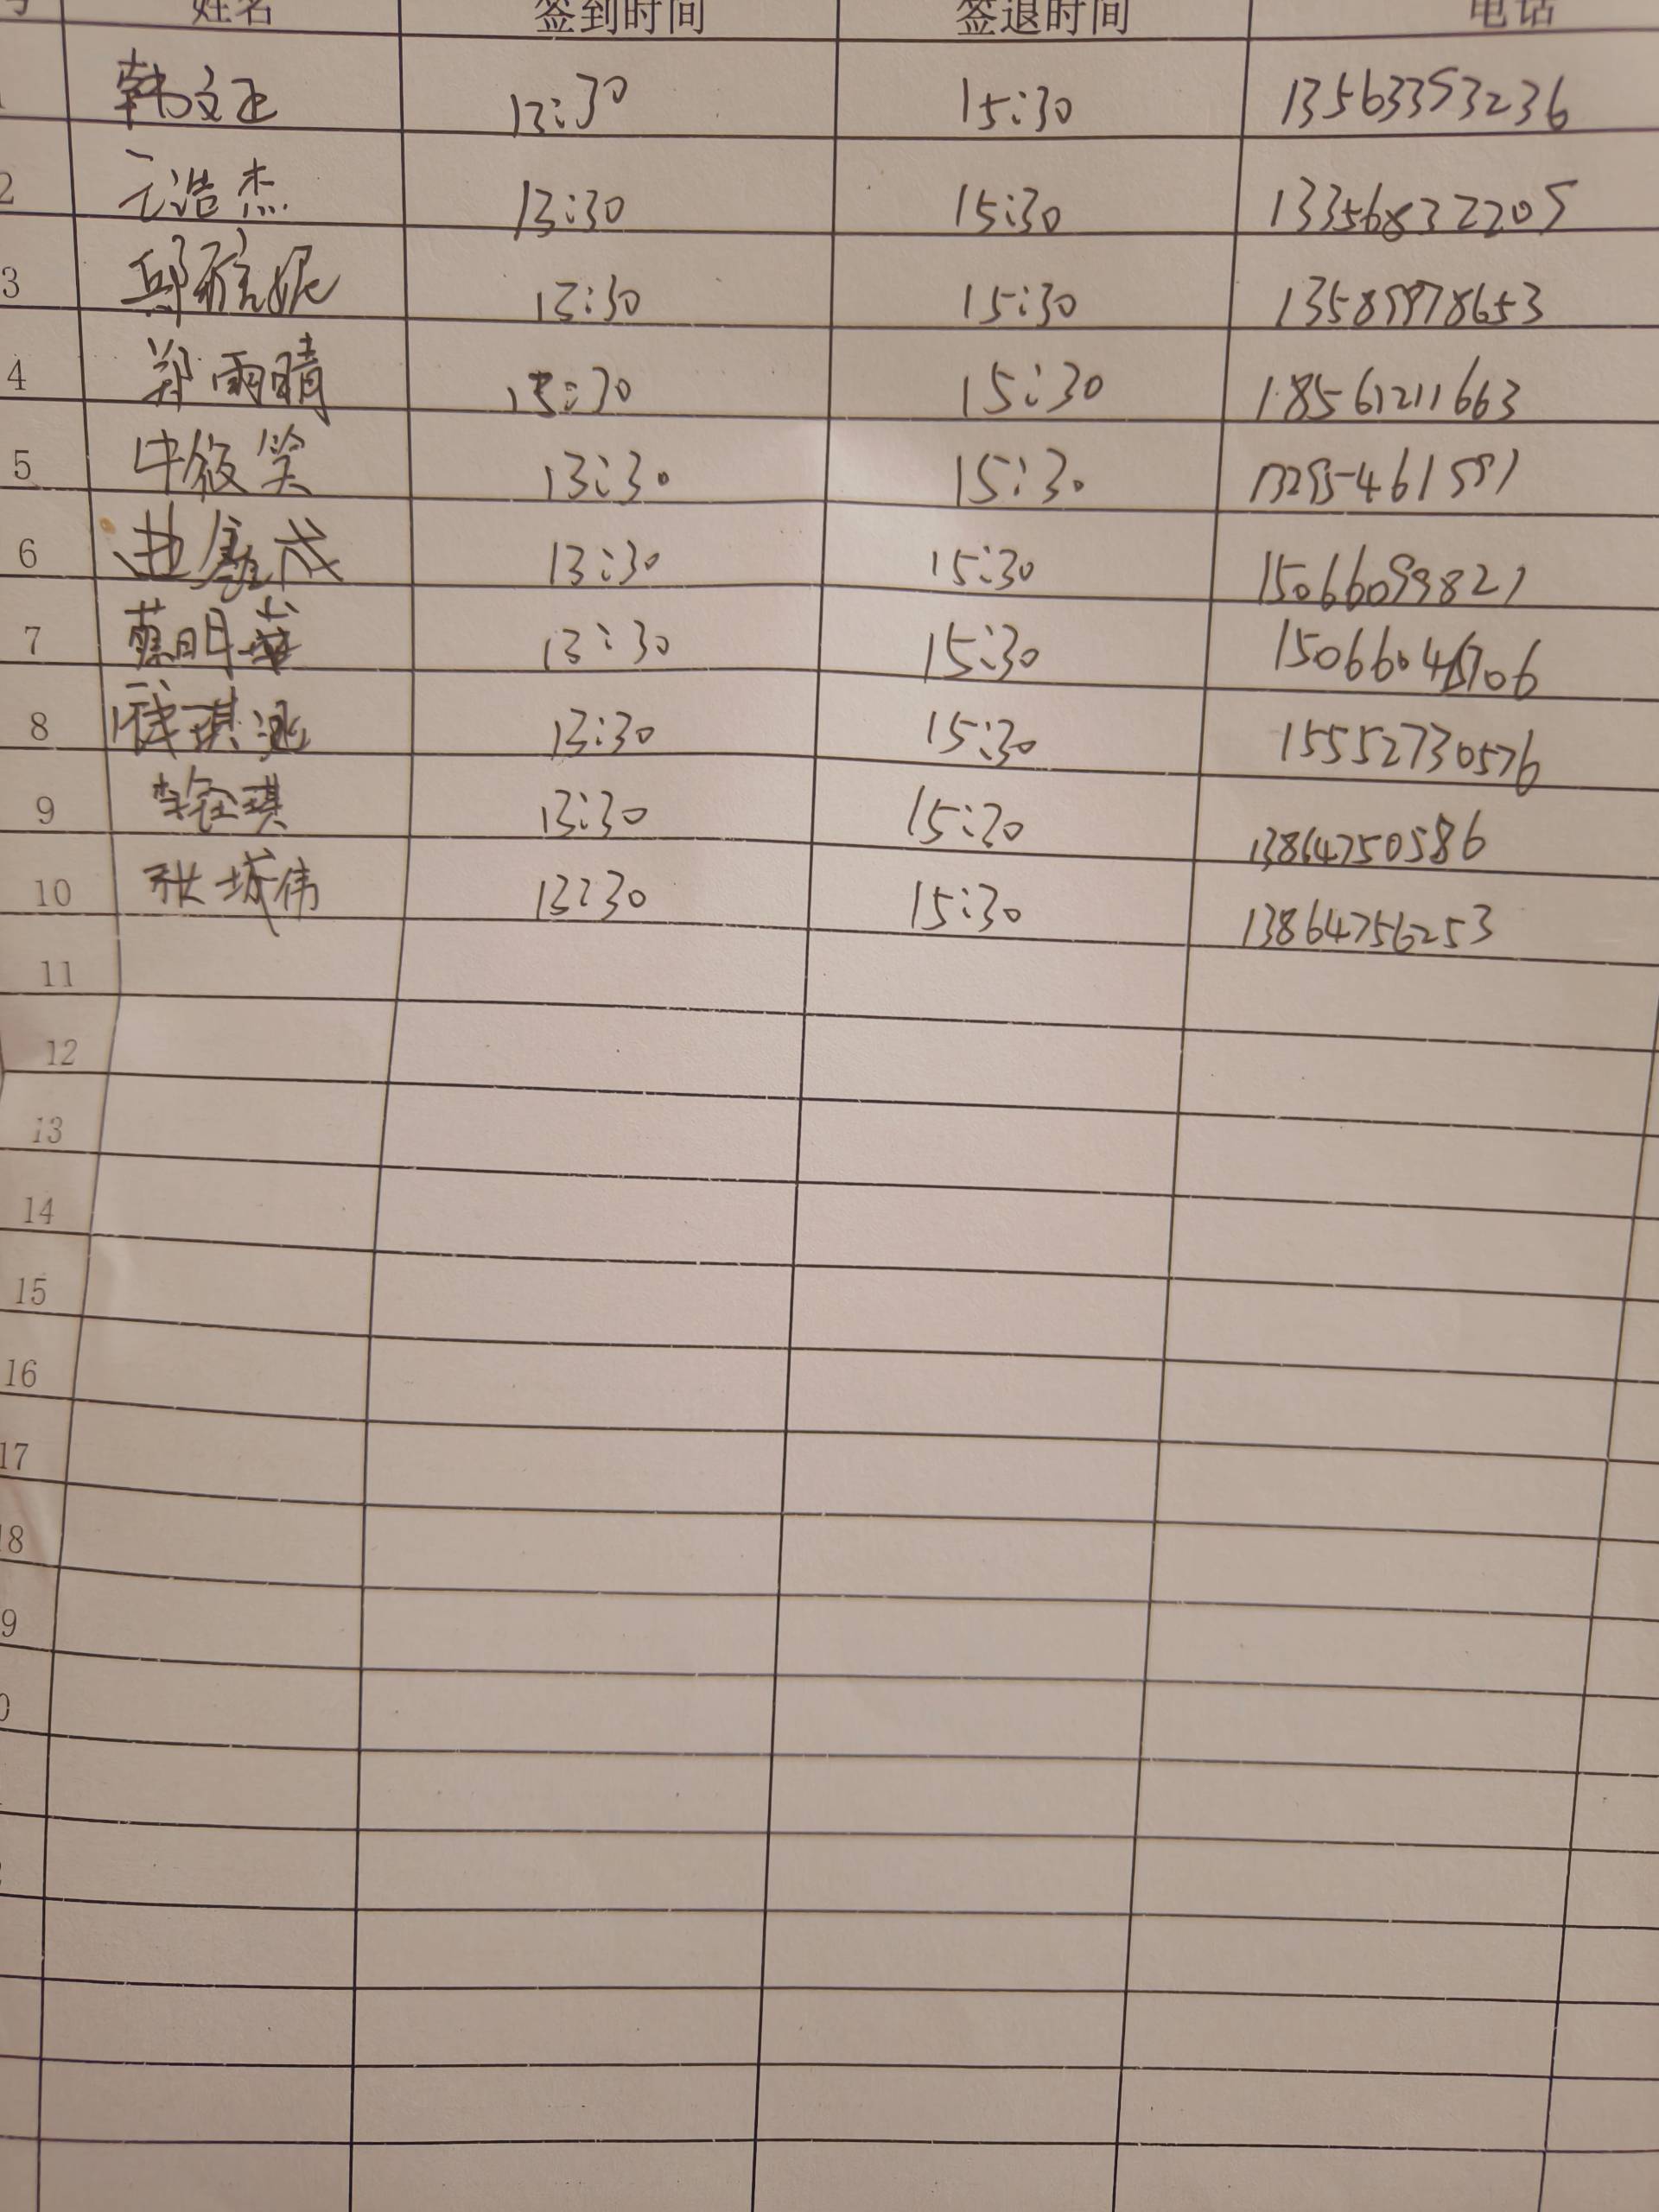 姓名 签到时间 签退时间 电话
1 韩文正 13:30 15:30 13563393236
2 亓浩杰 13:30 15:30 13356832205
3 邱 妮 13:30 15:30 13589978653
4 郑雨晴 13:30 15:30 18561211663
5 牛筱笑 13:30 15:30
6 曲 成 13:30 15:30 15066099821
7 蔡明 13:30 15:30
8 琪 13:30 15:30 15552730576
9 琪 13:30 15:30 13864750586
10 张城伟 13:30 15:30 13864756253
11
12
13
14
15
16
17
18
9
0